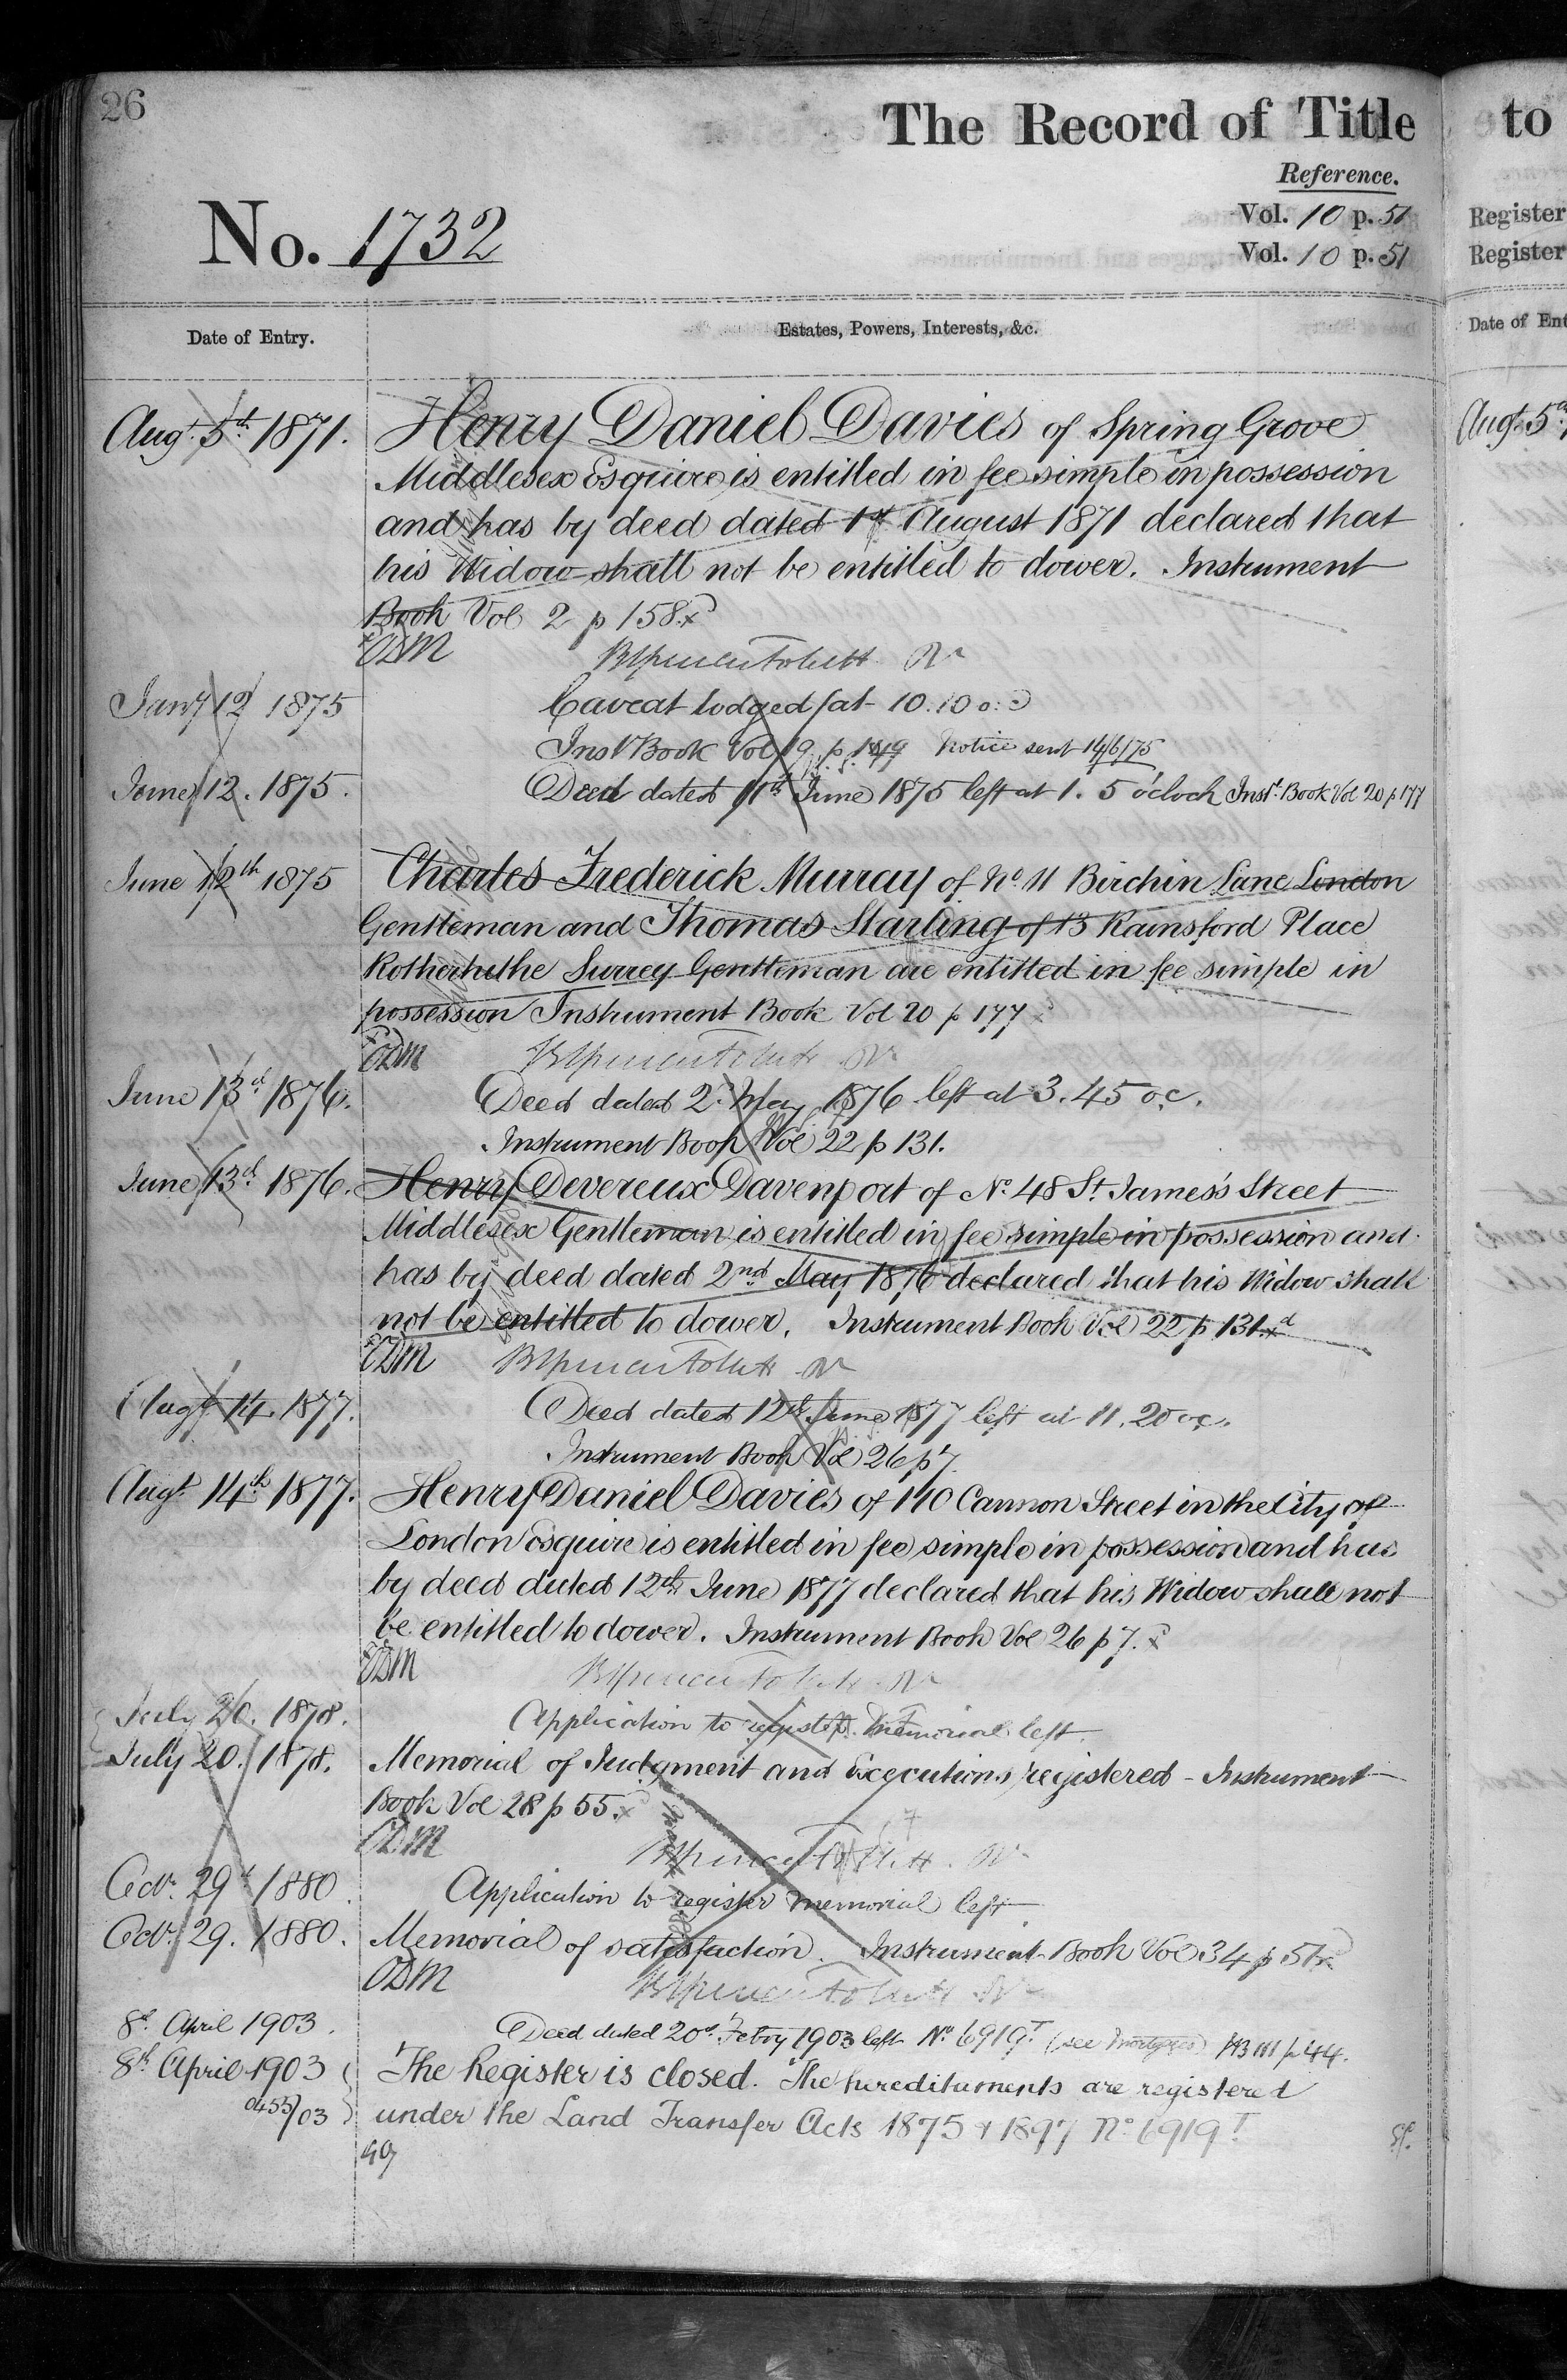 26
The Record of Title
to
Reference.
No. 1732
Vol. 10 p. 51
Register
Vol. 10 p. 51
Register
Date of Entry.
Estates, Powers, Interests, &c.
Date of Ent
Augt. 5th 1871. Henry Daniel Davies of Spring Grove
Augt. 5th
Middlesex Esquire is entitled in fee simple in possession
and has by deed dated 1st August 1871 declared that
his Widow shall not be entitled to dower. Instrument
Book Vol 2 p 158.
Jany 12 1875 Caveat lodged at 10.10 o.c
Inst Book Vol 19 p 149 Notice sent 14/6/75
June 12. 1875. Deed dated 11th June 1875 left at 1. 5 o'clock Inst. Book Vol 20 p 177
June 12th 1875 Charles Frederick Murray of No. 11 Birchin Lane London
Gentleman and Thomas Starling of 13 Rainsford Place
Rotherhithe Surrey Gentleman are entitled in fee simple in
possession Instrument Book Vol 20 p 177
June 13d 1876. Deed dated 2d May 1876 left at 3.45 o.c.
Instrument Book Vol 22 p 131.
June 13d 1876. Henry Devereux Davenport of No. 48 St. James's Street
Middlesex Gentleman is entitled in fee simple in possession and
has by deed dated 2nd May 1876 declared that his Widow shall
not be entitled to dower. Instrument Book Vol 22 p 131
Augt 14. 1877. Deed dated 12th June 1877 left at 11.20 o.c.
Instrument Book Vol 26 p 7.
Augt 14th 1877. Henry Daniel Davies of 110 Cannon Street in the City of
London Esquire is entitled in fee simple in possession and has
by deed dated 12th June 1877 declared that his Widow shall not
be entitled to dower. Instrument Book Vol 26 p 7.
July 20. 1878. Application to register Memorial left.
July 20. 1878. Memorial of Judgment and Executions registered - Instrument
Book Vol 28 p 55.
Octr. 29th 1880. Application to register memorial left
Octr. 29. 1880. Memorial of satisfaction. Instrument Book Vol 34 p 51
8th April 1903. Deed dated 20th Febry 1903 left No. 6919T (see Mortgages) p 44.
8th April 1903 The Register is closed. The hereditaments are registered
0455/03 under the Land Transfer Acts 1875 & 1897 No. 6919T